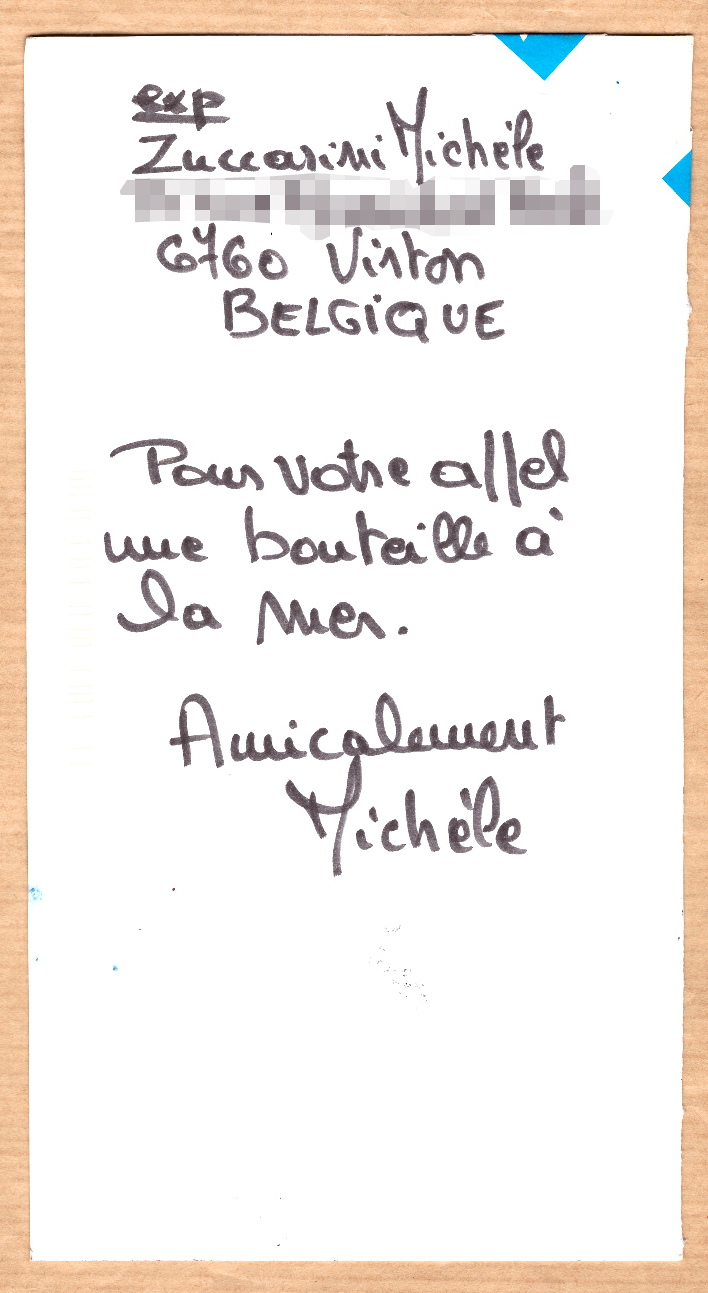 exp
Zuccarini Michèle
6760 Virton
BELGIQUE
Pour votre appel
une bouteille à
la mer.
Amicalement
Michèle